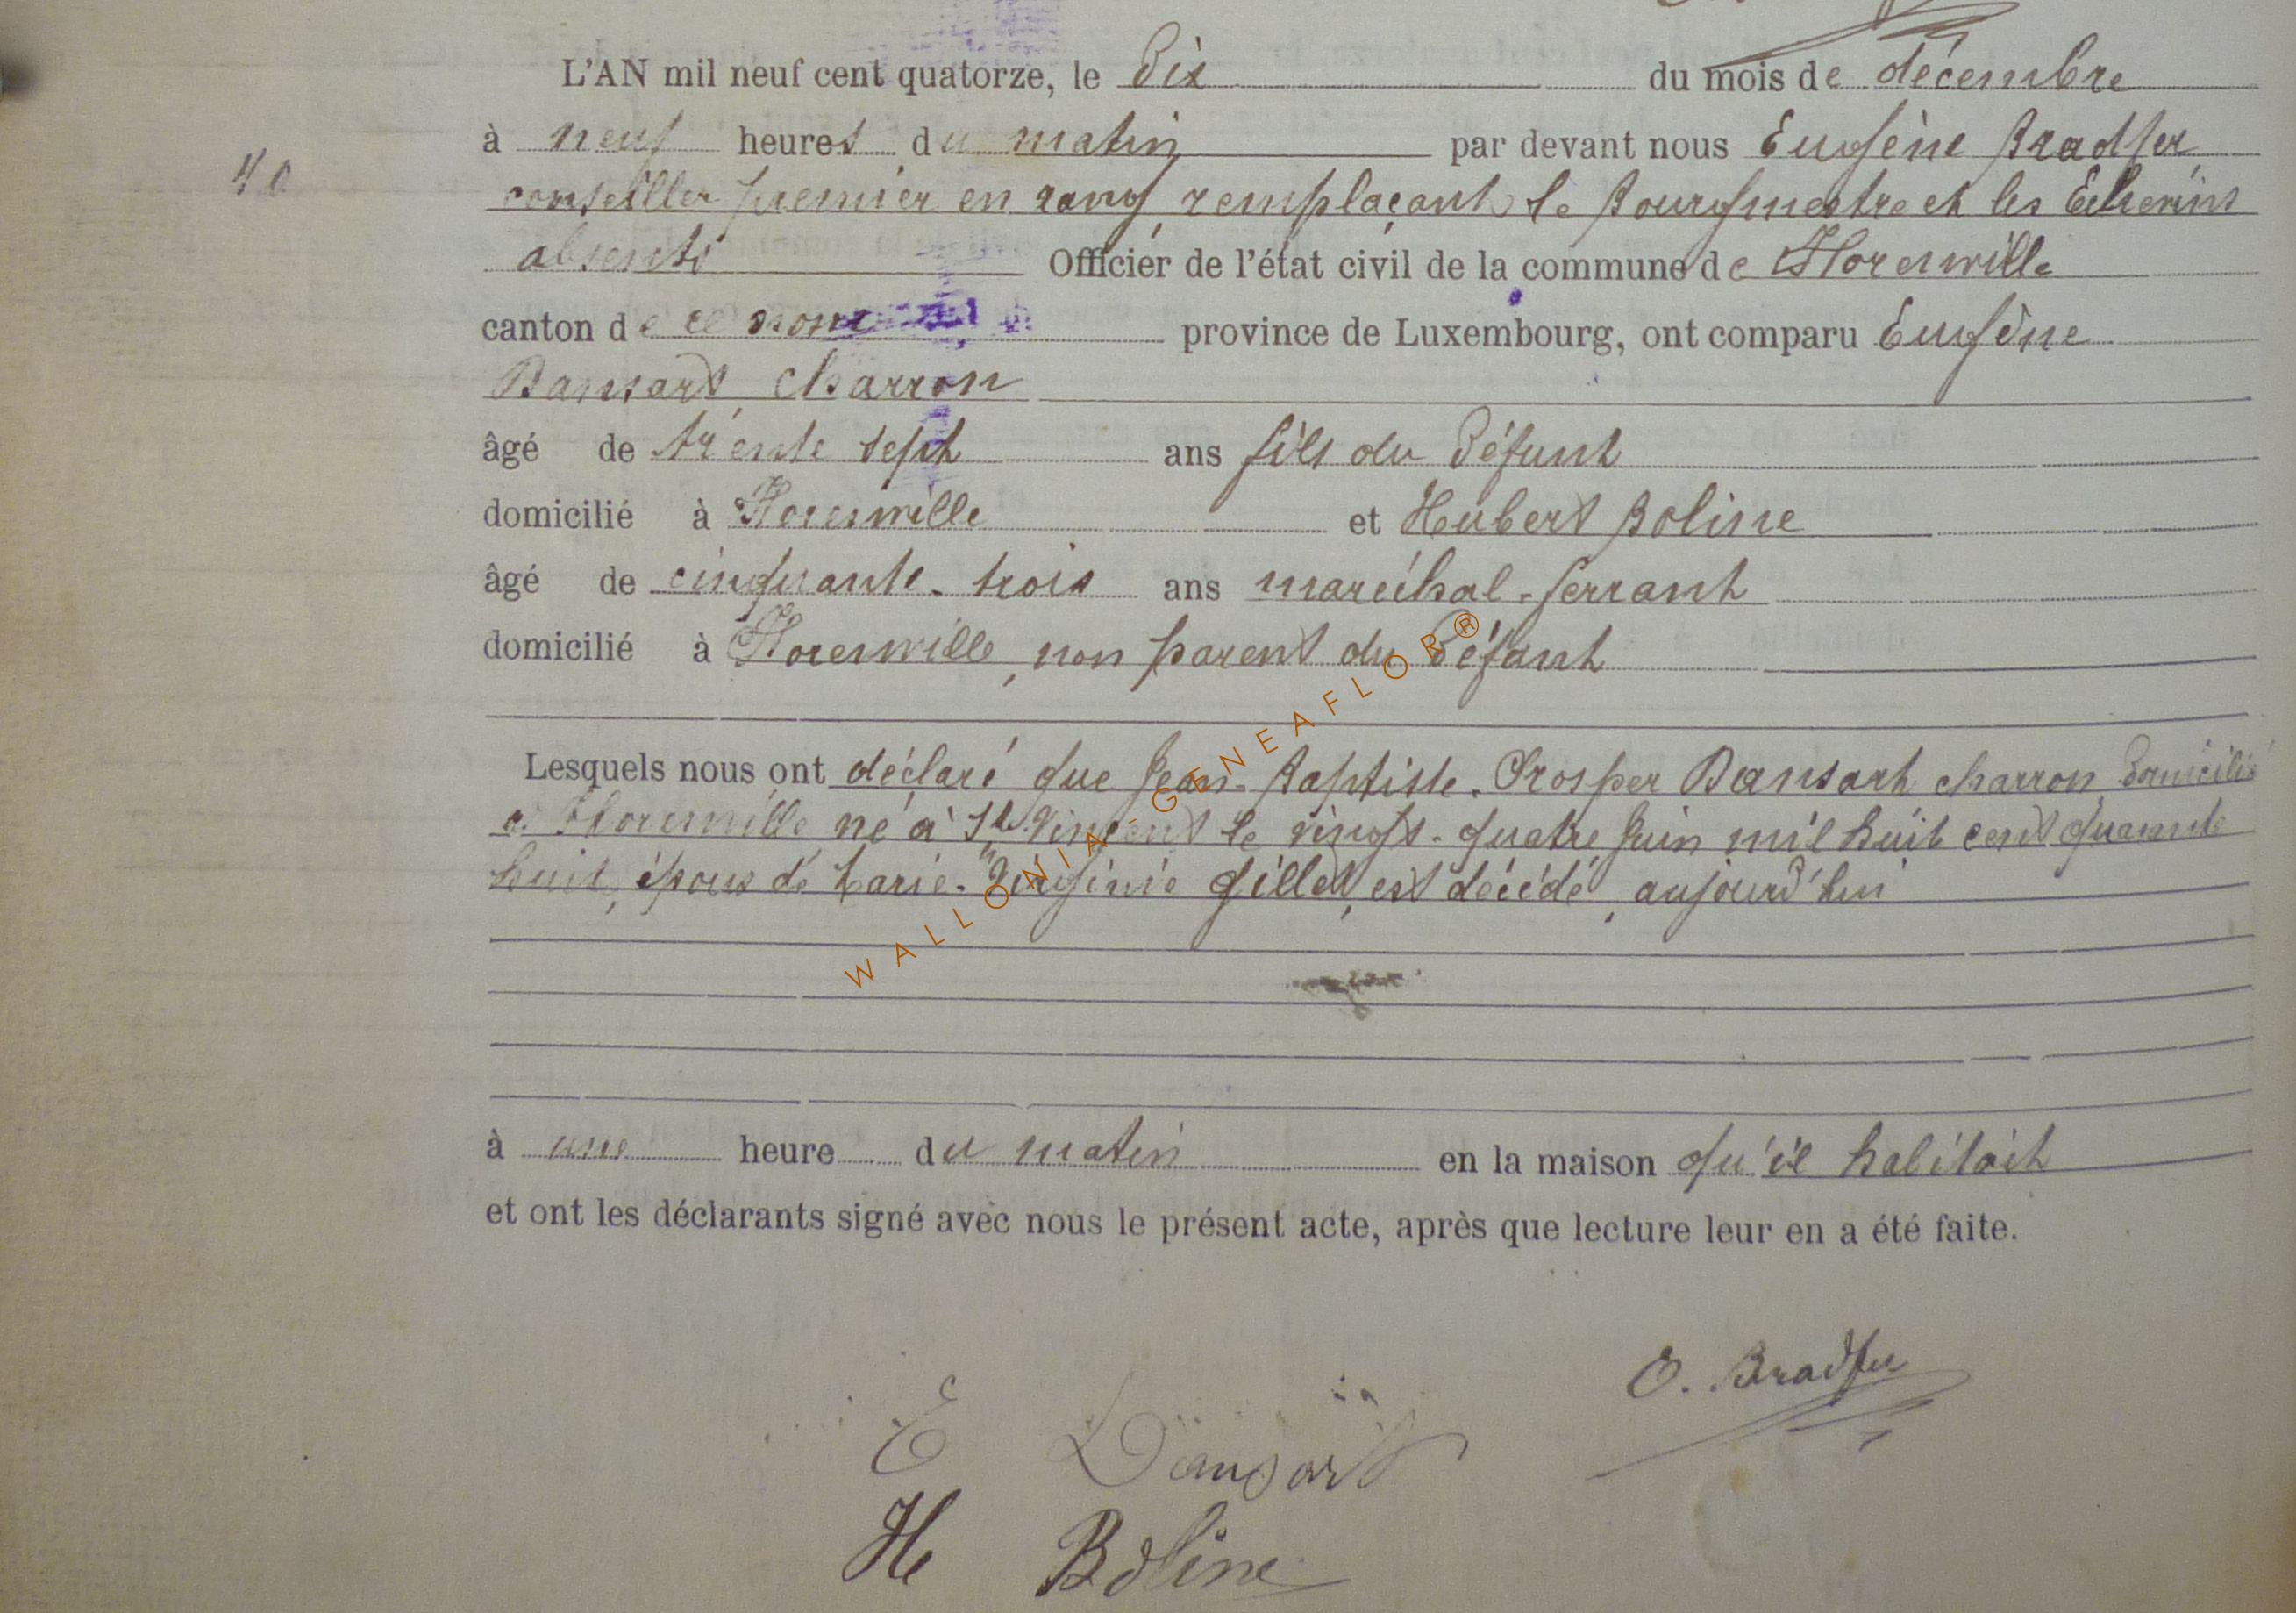 L'AN mil neuf cent quatorze, le Dix du mois de décembre
à neuf heures du matin par devant nous Eugène Bradfer
40
conseiller premier en rang remplaçant le Bourgmestre et les Echevins
absents Officier de l'état civil de la commune de Florenville
canton de ce nom province de Luxembourg, ont comparu Eugène
Dansart charron
âgé de trente sept ans fils du Défunt
domicilié à Florenville et Hubert Boline
âgé de cinquante-trois ans maréchal-ferrant
domicilié à Florenville, non parent du Défunt
Lesquels nous ont déclaré que Jean-Baptiste-Prosper Dansart charron Domicilié
à Florenville né à St Vincent le vingt-quatre Juin mil huit cent quarante
huit, époux de Marie-Virginie Gillet, est décédé, aujourd'hui
à une heure du matin en la maison qu'il habitait
et ont les déclarants signé avec nous le présent acte, après que lecture leur en a été faite.
E. Bradfer
E Dansart
H Boline
WALLONIA-GENEAFLOR®